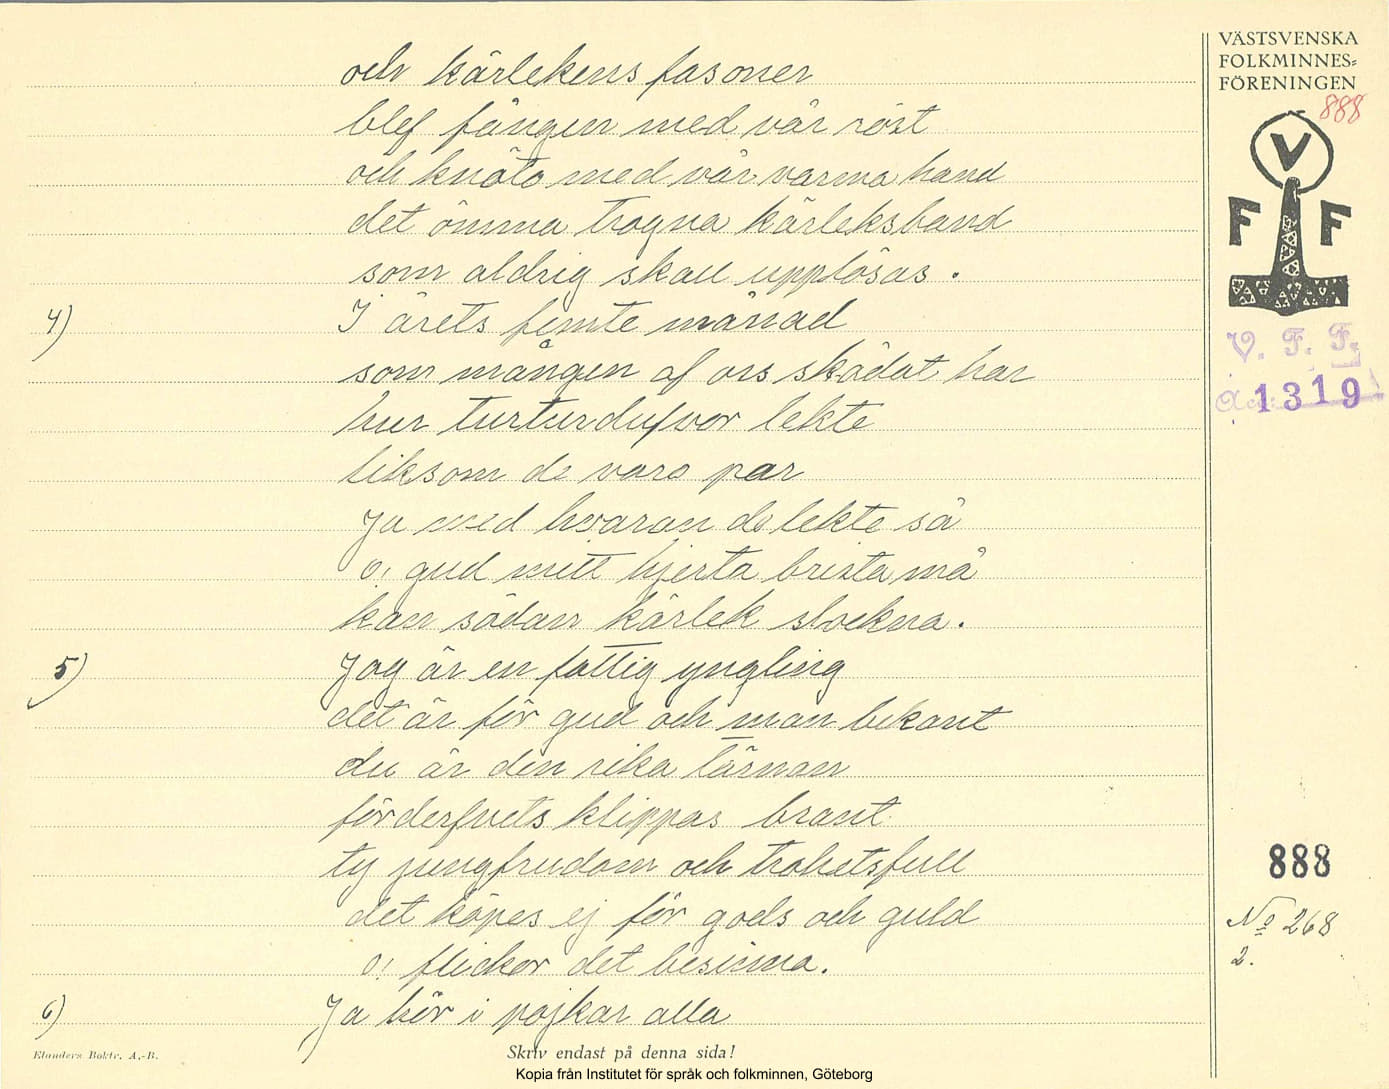 och kärlekens fasoner
blef fången med vår röst
och knöto med vår varma hand
det ömma trogna kärleksband
som aldrig skall upplösas.
4) I årets femte månad
som mången af oss skådat har
hur turturdufvor lekte
liksom de voro par
Ja med hvaran de lekte så
o! gud mitt hjerta brista må
kan sådan kärlek slockna.
5) Jag är en fattig yngling
det är för gud och man bekant
du är den rika tärnan
förderfvets klippas brant
ty jungfrudom och trohetsfull
det köpes ej för gods och guld
o! flickor det besinna.
6) Ja hör i pojkar alla
VÄSTSVENSKA
FOLKMINNES-
FÖRENINGEN
888
V
F F
V. F. F.
Acc. 1319
888
No 268
2.
Elanders Boktr. A.-B.
Skriv endast på denna sida!
Kopia från Institutet för språk och folkminnen, Göteborg